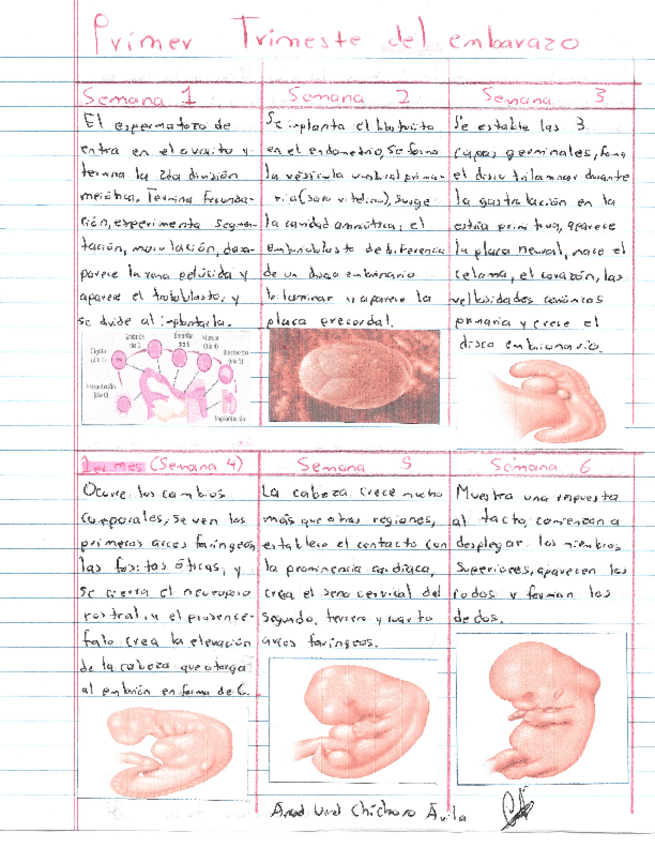 Primer Trimeste del embarazo
Semana 1
El espermatozo de
entra en el ovocito y
termina la 2da división
meiótica. Termina fecunda-
ción, experimenta segmen-
tación, morulación, desa-
parece la zona pelúcida y
aparece el trofoblasto, y
se divide al implantarla.
Cigoto
(día 1)
Embrión
día 2
Embrión
día 3
Mórula
(día 4)
Blastocisto
(día 5)
Fecundación
(día 0)
Implantación
Semana 2
Se implanta el blastocito
en el endometrio, se forma
la vesícula umbilical prima-
ria (saco vitelino), surge
la cavidad amniótica; el
embrioblasto se diferencia
de un disco embrionario
bilaminar y aparece la
placa precordal.
Semana 3
Se estable las 3
capas germinales, forma
el disco trilaminar durante
la gastrulación en la
estría primitiva, aparece
la placa neural, nace el
celoma, el corazón, las
vellosidades coriónicas
primaria y crece el
disco embrionario.
1er mes (Semana 4)
Ocurre los cambios
corporales, se ven los
primeros arcos faríngeos,
las fositas óticas, y
se cierra el neuroporo
rostral, y el prosencé-
falo crea la elevación
de la cabeza que otorga
al embrión en forma de C.
Semana 5
La cabeza crece mucho
más que otras regiones,
establece el contacto con
la prominencia cardiaca,
crea el seno cervical del
segundo, tercero y cuarto
arcos faríngeos.
Semana 6
Muestra una respuesta
al tacto, comienzan a
desplegar los miembros
superiores, aparecen los
codos y forman los
dedos.
Chicharo Ávila